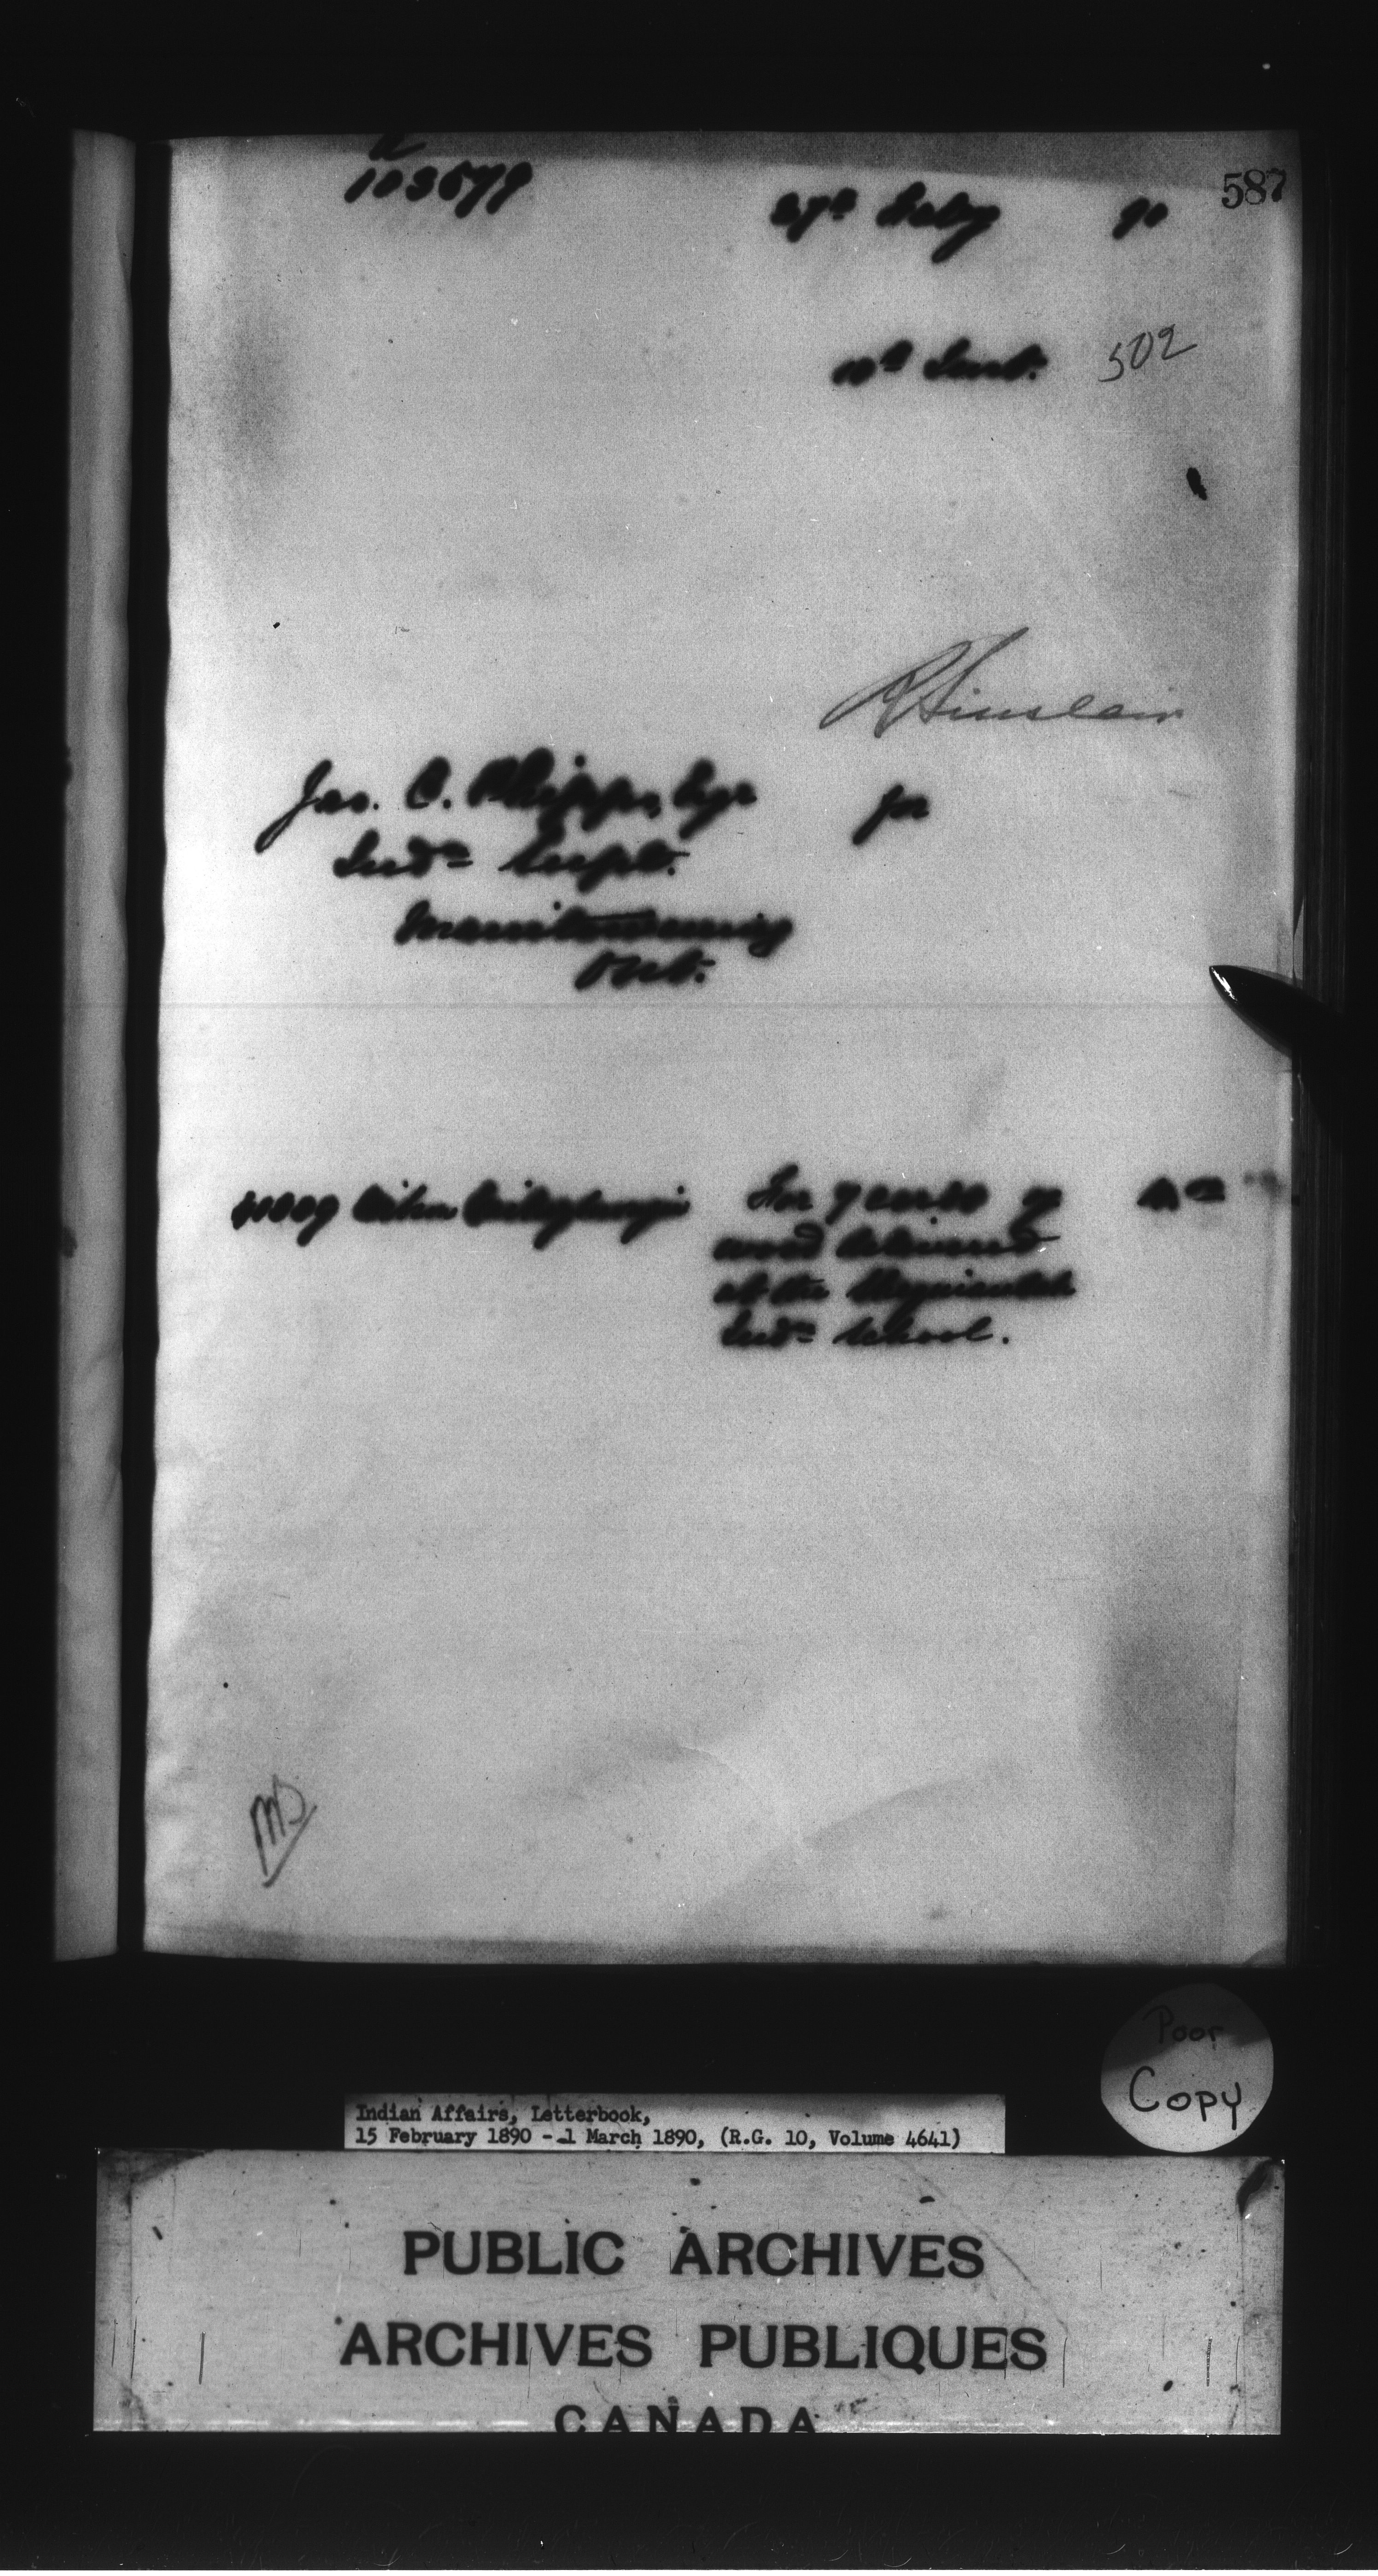 587
103579
27th Feby 90
10th Inst. 502
R Sinclair
Jas. C. Phipps, Esqr for
Indn Supt.
Manitowaning
Ont.
For 7 cords of
wood delivered
at the
Indn School.
Poor
Copy
Indian Affairs, Letterbook,
15 February 1890 - 1 March 1890, (R.G. 10, Volume 4641)
PUBLIC ARCHIVES
ARCHIVES PUBLIQUES
CANADA